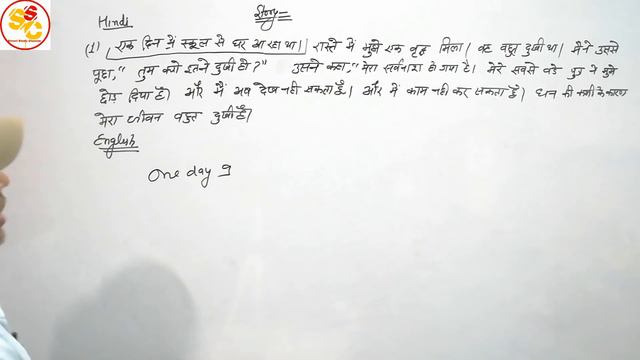 Story
Hindi
(1) एक दिन मैं स्कूल से घर आ रहा था। रास्ते में मुझे एक वृद्ध मिला। वह बहुत दुखी था। मैंने उससे
पूछा, "तुम क्यों इतने दुखी हो?" उसने कहा, "मेरा सर्वनाश हो गया है। मेरे सबसे बड़े पुत्र ने मुझे
छोड़ दिया है। और मैं अब देख नहीं सकता हूँ। और मैं काम नहीं कर सकता हूँ। धन की कमी के कारण
मेरा जीवन बहुत दुखी है।
English
One day I